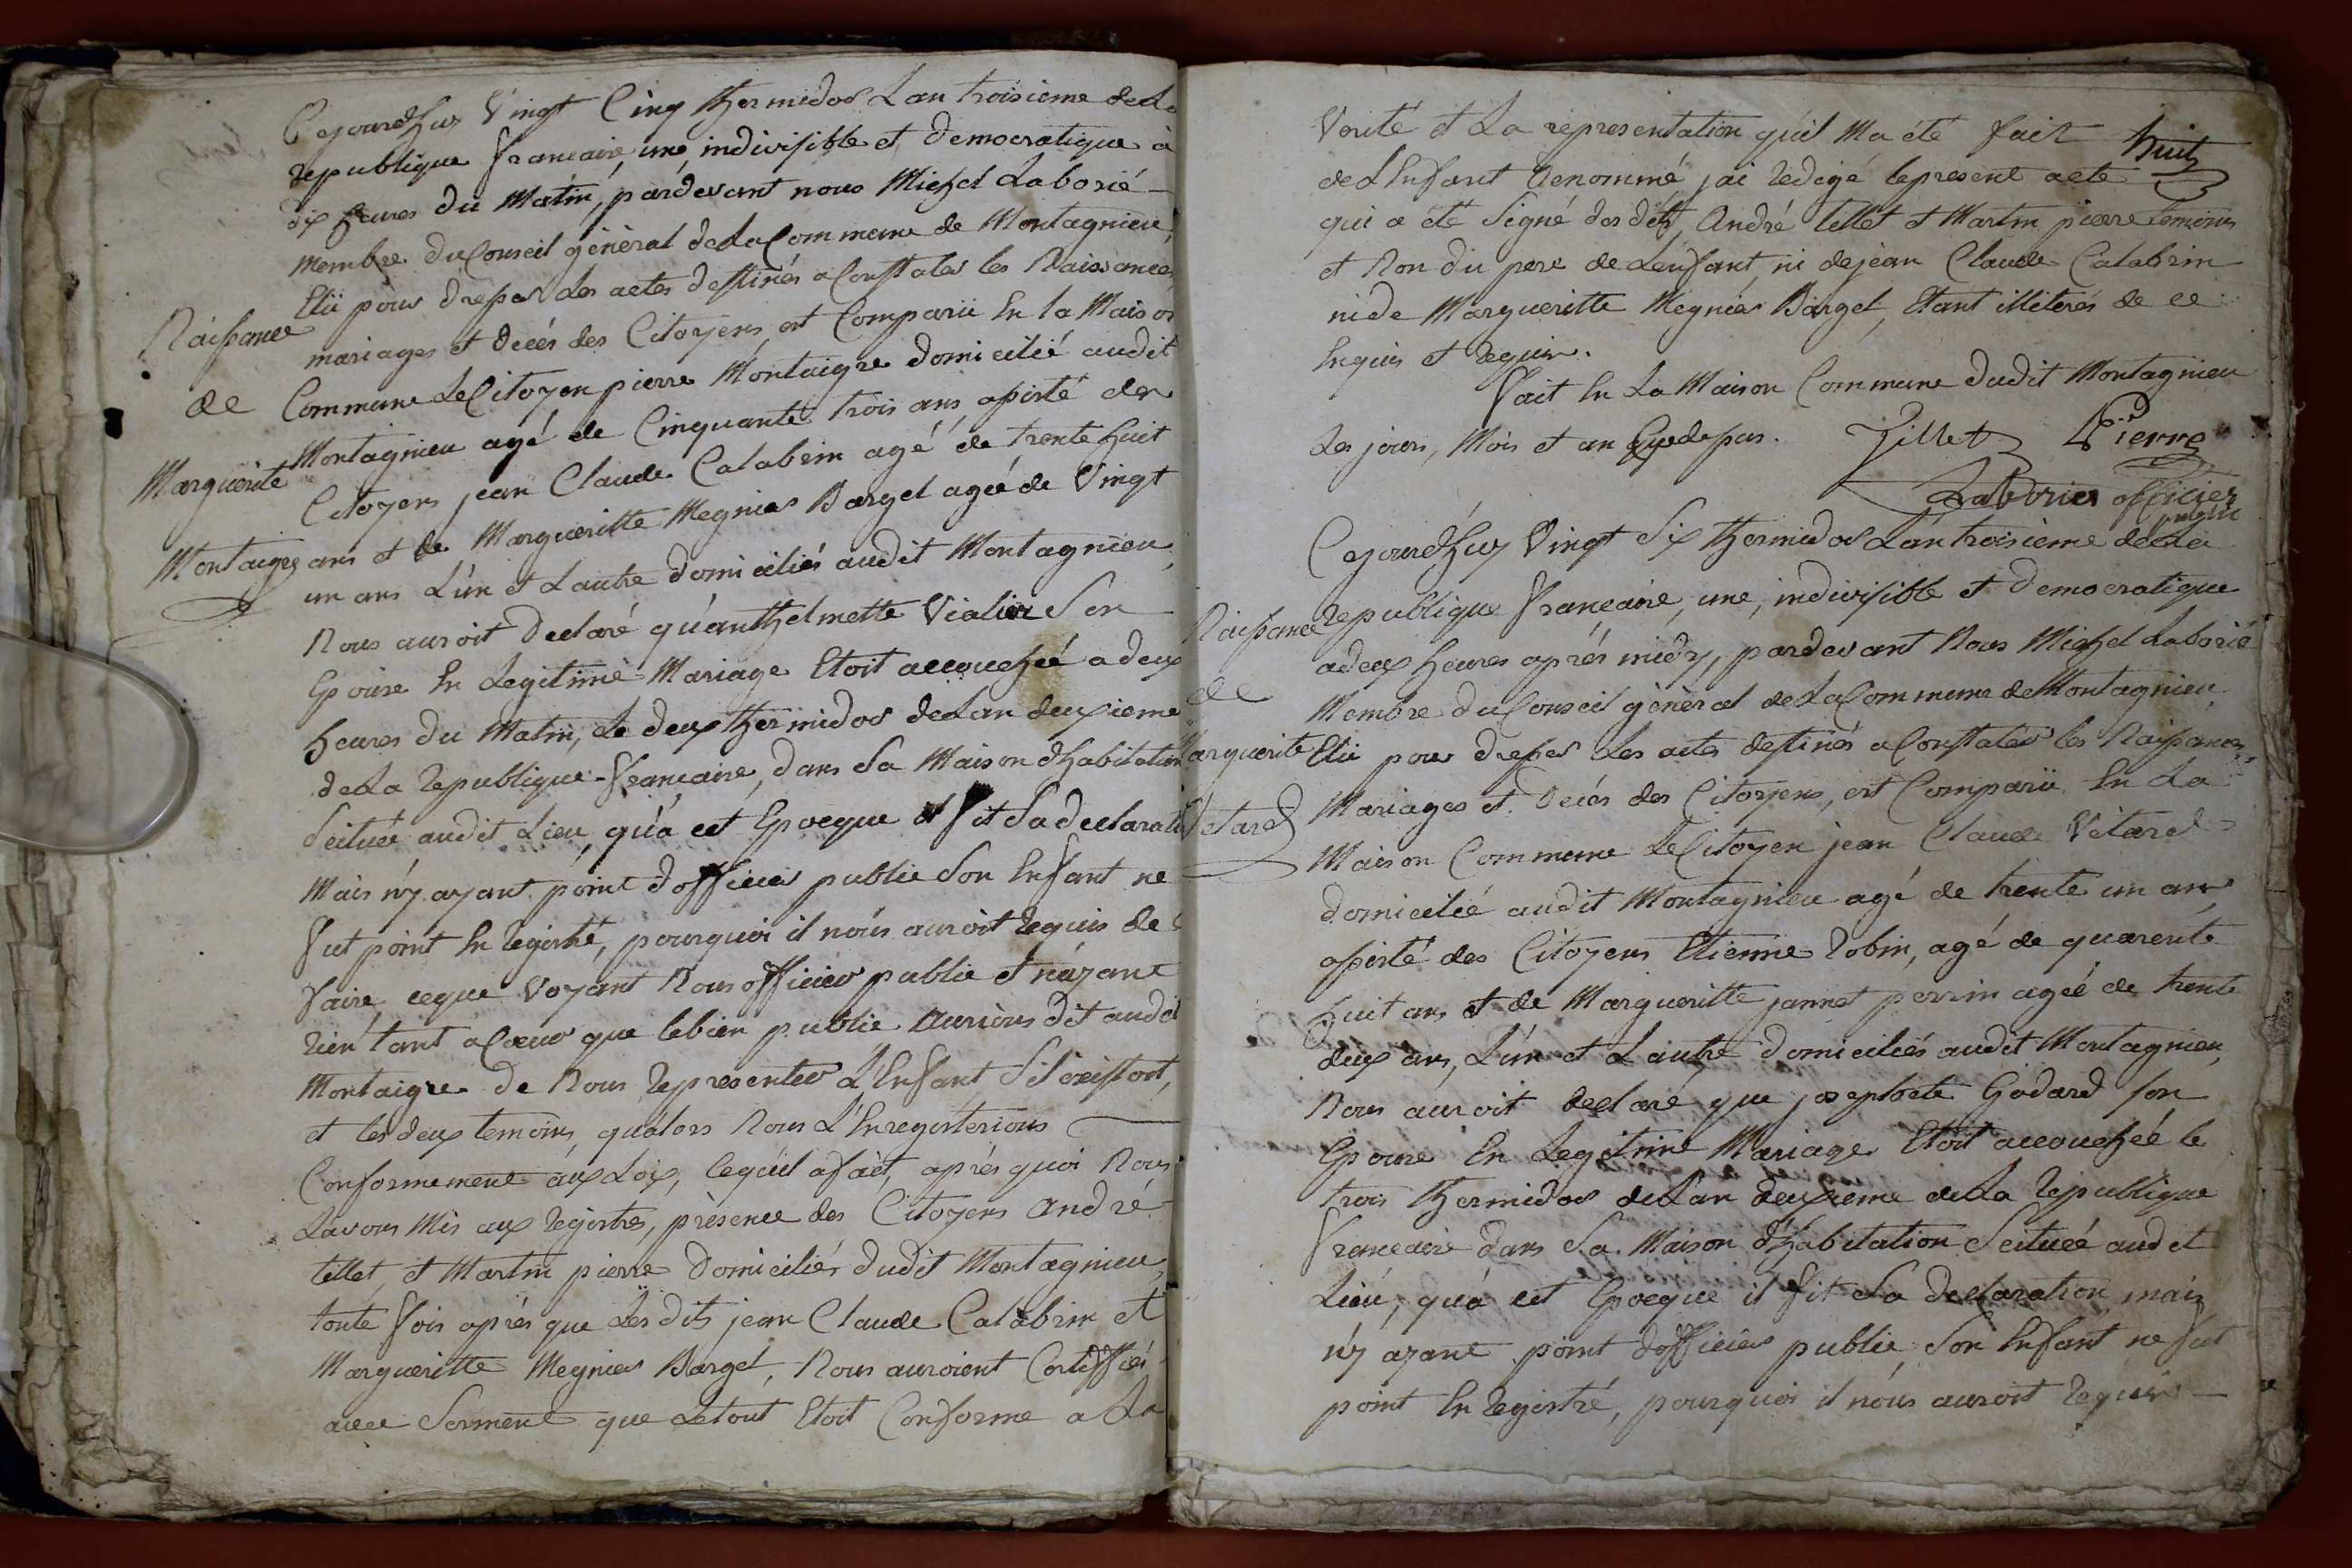 Cejourdhuy Vingt Cinq thermidor L'an troisieme de La
republique francaise, une, indivisible et Democratique à
dix heures du Matin, pardevant nous Michel Laborié
membre du Conseil général de La Commune de Montagnieu,
Elü pour dresser Les actes destinés a Constater les Naissances
mariages et décés des Citoyens, est Comparü En la Maison
Commune Le Citoyen pierre Montaigre domicilié audit
Montagnieu agé de Cinquante trois ans, assisté des
Citoyens jean Claude Calabrin agé de trente huit
ans et de Margueritte Megnier Bargel agée de Vingt
un ans L'un et L'autre domiciliés audit Montagnieu,
Nous auroit declaré qu'anthelmette Vialier Son
Epouse En Legitime Mariage Etoit accouchée a deux
heures du Matin, Le deux thermidor de L'an deuxieme
de La republique francaise, dans Sa Maison d'habitation
Scituée audit Lieu, qu'à cet Epocque il fit Sa declarati
Mais n'y ayant point d'officier public Son Enfant ne
fut point En registré, pourquoi il nous auroit requis de
faire, ceque Voyant Nous officier public et n'ayant
rien tant a Coeur que le bien public aurions dit audit
Montaigre de Nous representer L'Enfant S'il existoit,
et les deux temoins, qu'alors Nous L'Enregisterions
Conformement aux Loix, Ce qu'il a fait, aprés quoi Nous
L'avons Mis aux registres, présence des Citoyens andré
tillet, et Martin pierre domiciliés dudit Montagnieu,
toute fois aprés que Les dits jean Claude Calabrin et
Margueritte Megnier Bargel, Nous auroient Certiffiés
avec Serment que Le tout Etoit Conforme a La
Naissance
de
Marguerite
Montaigre
Verité et La representation qu'il M'a été fait
huit
de L'Enfant denommé j'ai redigé le present acte
qui a été Signé des dits André tillet et Martin pierre temoins
et Non du pere de L'enfant, ni de jean Claude Calabrin
ni de Margueritte Megnier Bargel, Etant illiterés de ce
Enquis et requis.
Fait En La Maison Commune dudit Montagnieu
Les jours, Mois et an Cydessus. Tillet Pierre
Laborier officier
public
Cejourdhuy Vingt Six thermidor L'an troisieme de La
republique francaise, une, indivisible et Democratique
a deux heures aprés midy, pardevant Nous Michel Laborié
Membre du Conseil général de La Commune de Montagnieu
Elü pour dresser Les actes destinés a Constater les Naissances,
Mariages et Décés des Citoyens, est Comparü En La
Maison Commune Le Citoyen jean Claude Vétard
domicilié audit Montagnieu agé de trente un ans,
assisté des Citoyens Etienne Robin, agé de quarente
huit ans et de Margueritte jannet perrin agée de trente
deux ans, L'un et L'autre domiciliés audit Montagnieu,
Nous auroit declaré que josephete Godard son
Epouse En Legitime Mariage Etoit accouchée le
trois thermidor de L'an deuxieme de La republique
francaise dans Sa Maison d'habitation Scituée audit
Lieu, qu'à cet Epocque il fit Sa declaration, mais
n'y ayant point d'officier public, Son Enfant ne fut
point En registré, pourquoi il nous auroit requis
Naissance
de
Marguerite
Vetard